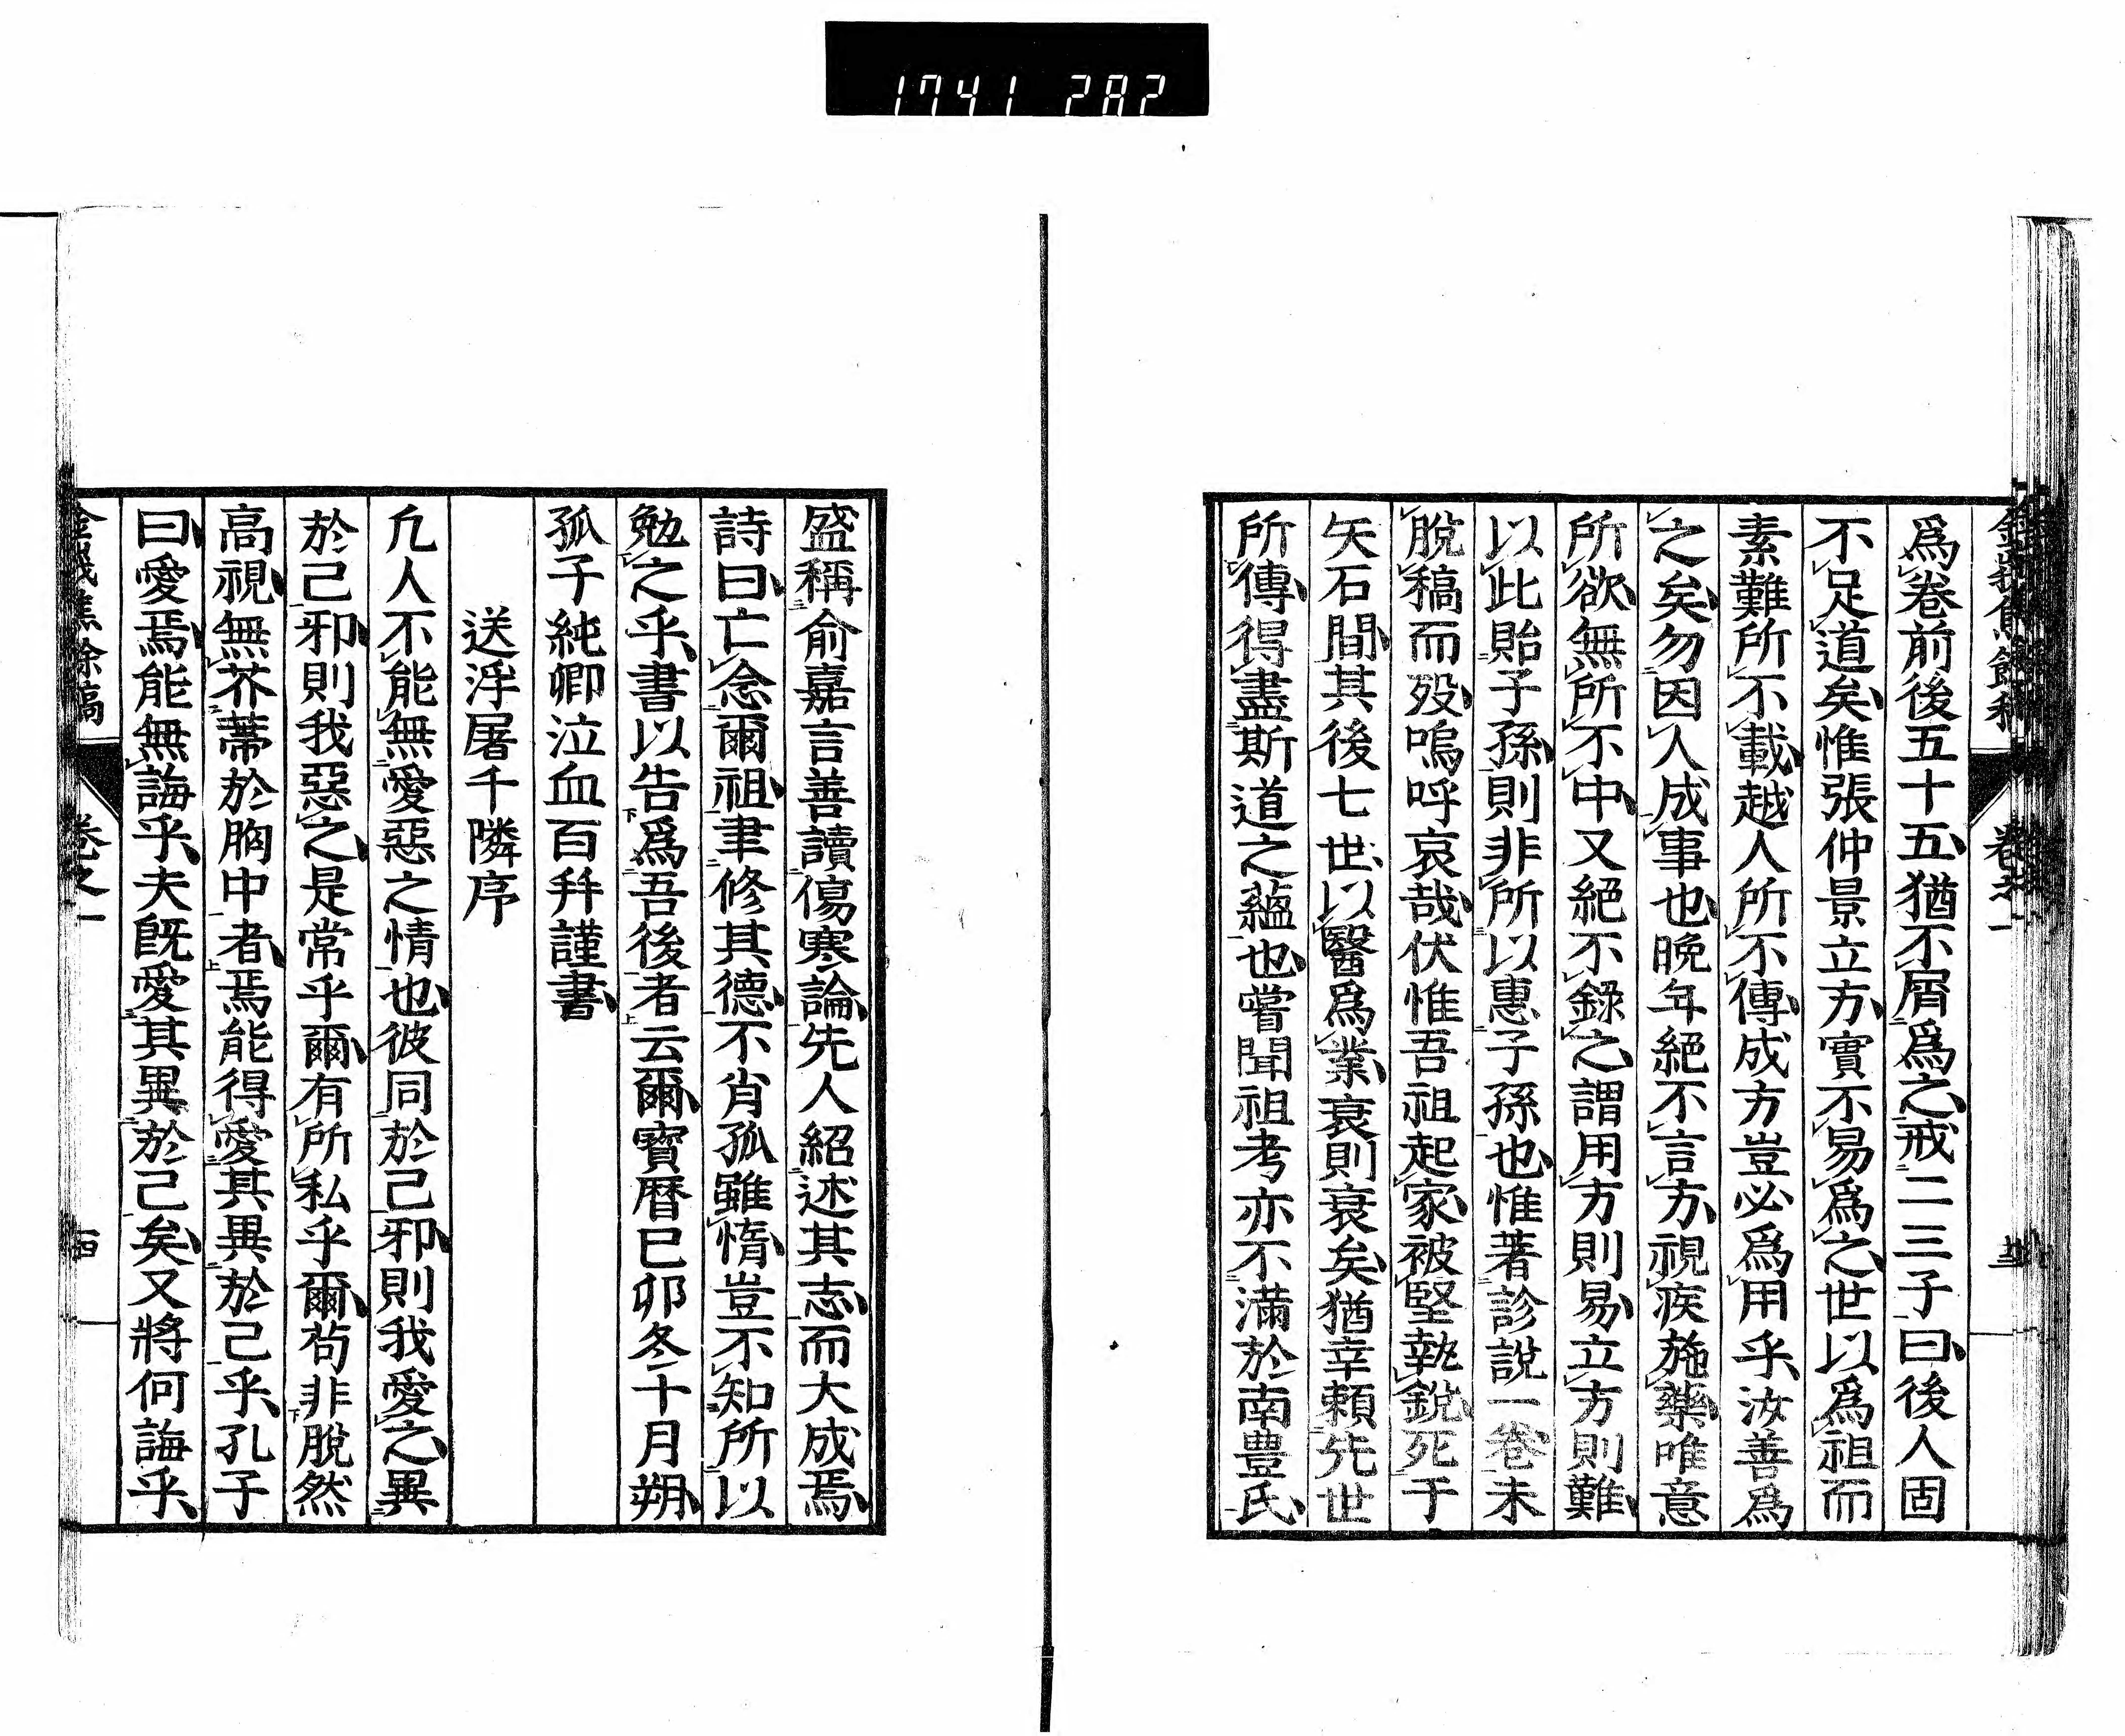 1741 282
為卷前後五十五猶不屑爲之戒二三子曰後人固
不足道矣惟張仲景立方實不易爲之世以爲祖而
素難所不載越人所不傳成方豈必爲用乎汝善爲
之矣勿因人成事也晚年絕不言方視疾施藥唯意
所欲無所不中又絕不錄之謂用方則易立方則難
以此貽子孫則非所以惠子孫也惟著診說一卷未
脫稿而歿嗚呼哀哉伏惟吾祖起家被堅執銳死于
矢石間其後七世以醫爲業衰則衰矣猶幸賴先世
所傳得盡斯道之蘊也嘗聞祖考亦不滿於南豊氏
盛稱俞嘉言善讀傷寒論先人紹述其志而大成焉
詩曰亡念爾祖聿修其德不肖孤雖惰豈不知所以
勉之乎書以告爲吾後者云爾寶曆己卯冬十月朔
孤子純卿泣血百拜謹書
送浮屠千隣序
凢人不能無愛惡之情也彼同於己邪則我愛之異
於己邪則我惡之是常乎爾有所私乎爾苟非脫然
高視無芥蔕於胸中者焉能得愛其異於己乎孔子
曰愛焉能無誨乎夫既愛其異於己矣又將何誨乎
餘稿 卷之一